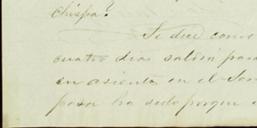 Chispa?
Se dice como
cuatro dias saldrá para
en asiento en el
pasar ha sido porque